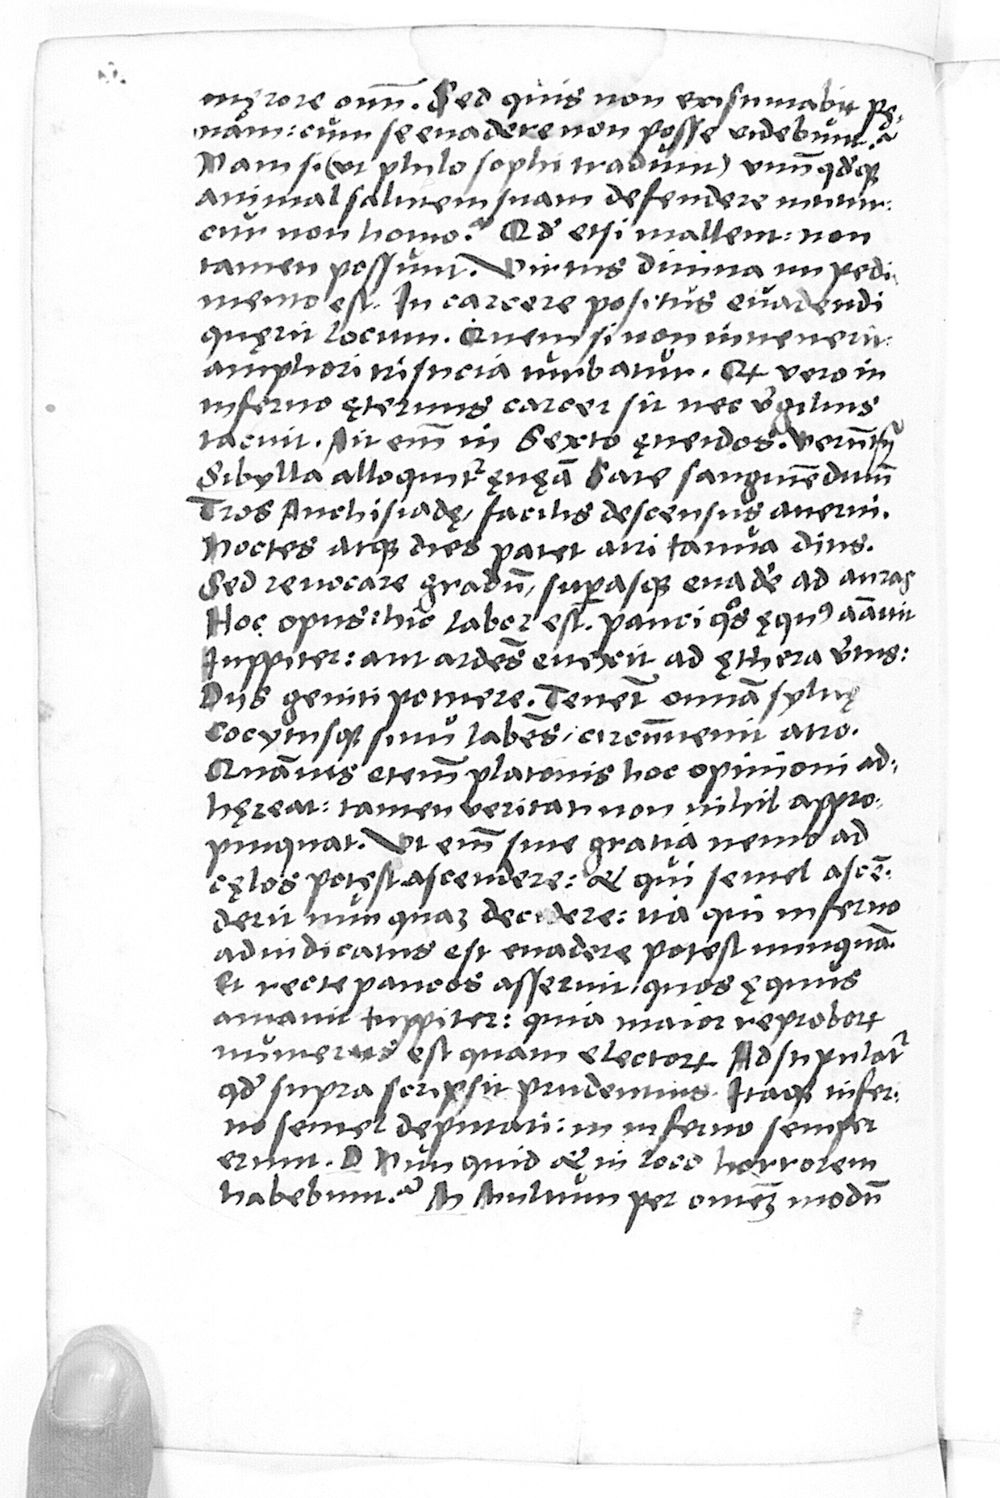 męrore oım̄. Sed quis non existimabit pę-
nam: cum se euadere non posse videbunt.?
Nam si (vt philosophi tradunt) vnūqd'q₃
animal salutem suam defendere nititur:
cur non homo.? Qd' etsi mallent: non
tamen possunt. Virtus diuina impedi
mento est. In carcere positus euadendi
quęrit locum. Quem si non inuenerit:
ampliori tristicia turbatur. Et vero in
inferno ęternus carcer sit nec v̓gilius
tacuit. Ait em̄ in Sexto ęneidos.
Sibylla alloquit᷑ ęnęā Sate sanguinē diuū
Tros Anchisiadę, facilis descensus auerni.
Noctes atq₃ dies patet atri Ianua ditis.
Sed reuocare gradū, superasq₃ euad'e ad auras
Hoc opus: hic labor est. pauci q̊s ęquꝰ aāuit
Iuppiter: aut ardēs euexit ad ęthera v̓tus:
Diis geniti potuere. Tenēt omnīa syluę
Cocytusq₃ sinu labēs, circūuenit atro.
Quāuis etem̄ platonis hoc opinioni ad-
hęreat: tamen veritati non nihil appro-
pinquat. Vt em̄ sine gratia nemo ad
cęlos potęst ascendere: & qui semel ascē-
derit nunquaʒ decidere: ita qui inferno
adiudicatus est euadere potest nunquā.
Et recte paucos asserit, quos ęquus
amauit Iuppiter: quia maior reproboꝝ
numerus est quam electoꝝ Adstipulat᷑
qd' supra scripsit prudentius. Itaq₃ infer-
no semel deputati: in inferno semper
erunt. D Nunquid & in loco horrorem
habebunt.? M Multum per omneʒ modū